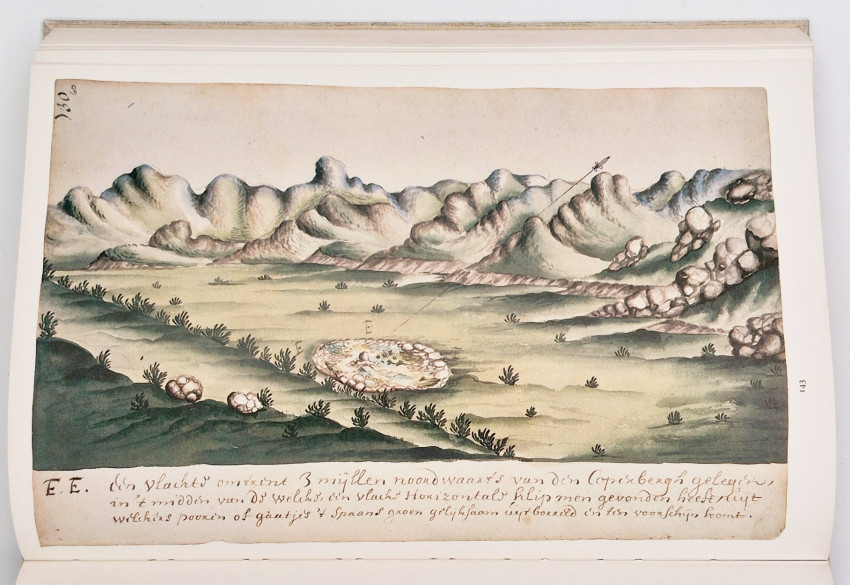 130
60
E
E
E. E. één vlachte omtrent 3 mijllen noordwaarts van den Coperbergh gelegen,
in 't midden van de welche een vlache Horizontale klip men gevonden heeft uijt
welchers pooren of gaatjes 't spaans groen gelijksaam uijt borreld en ten voorschijn komt.
143